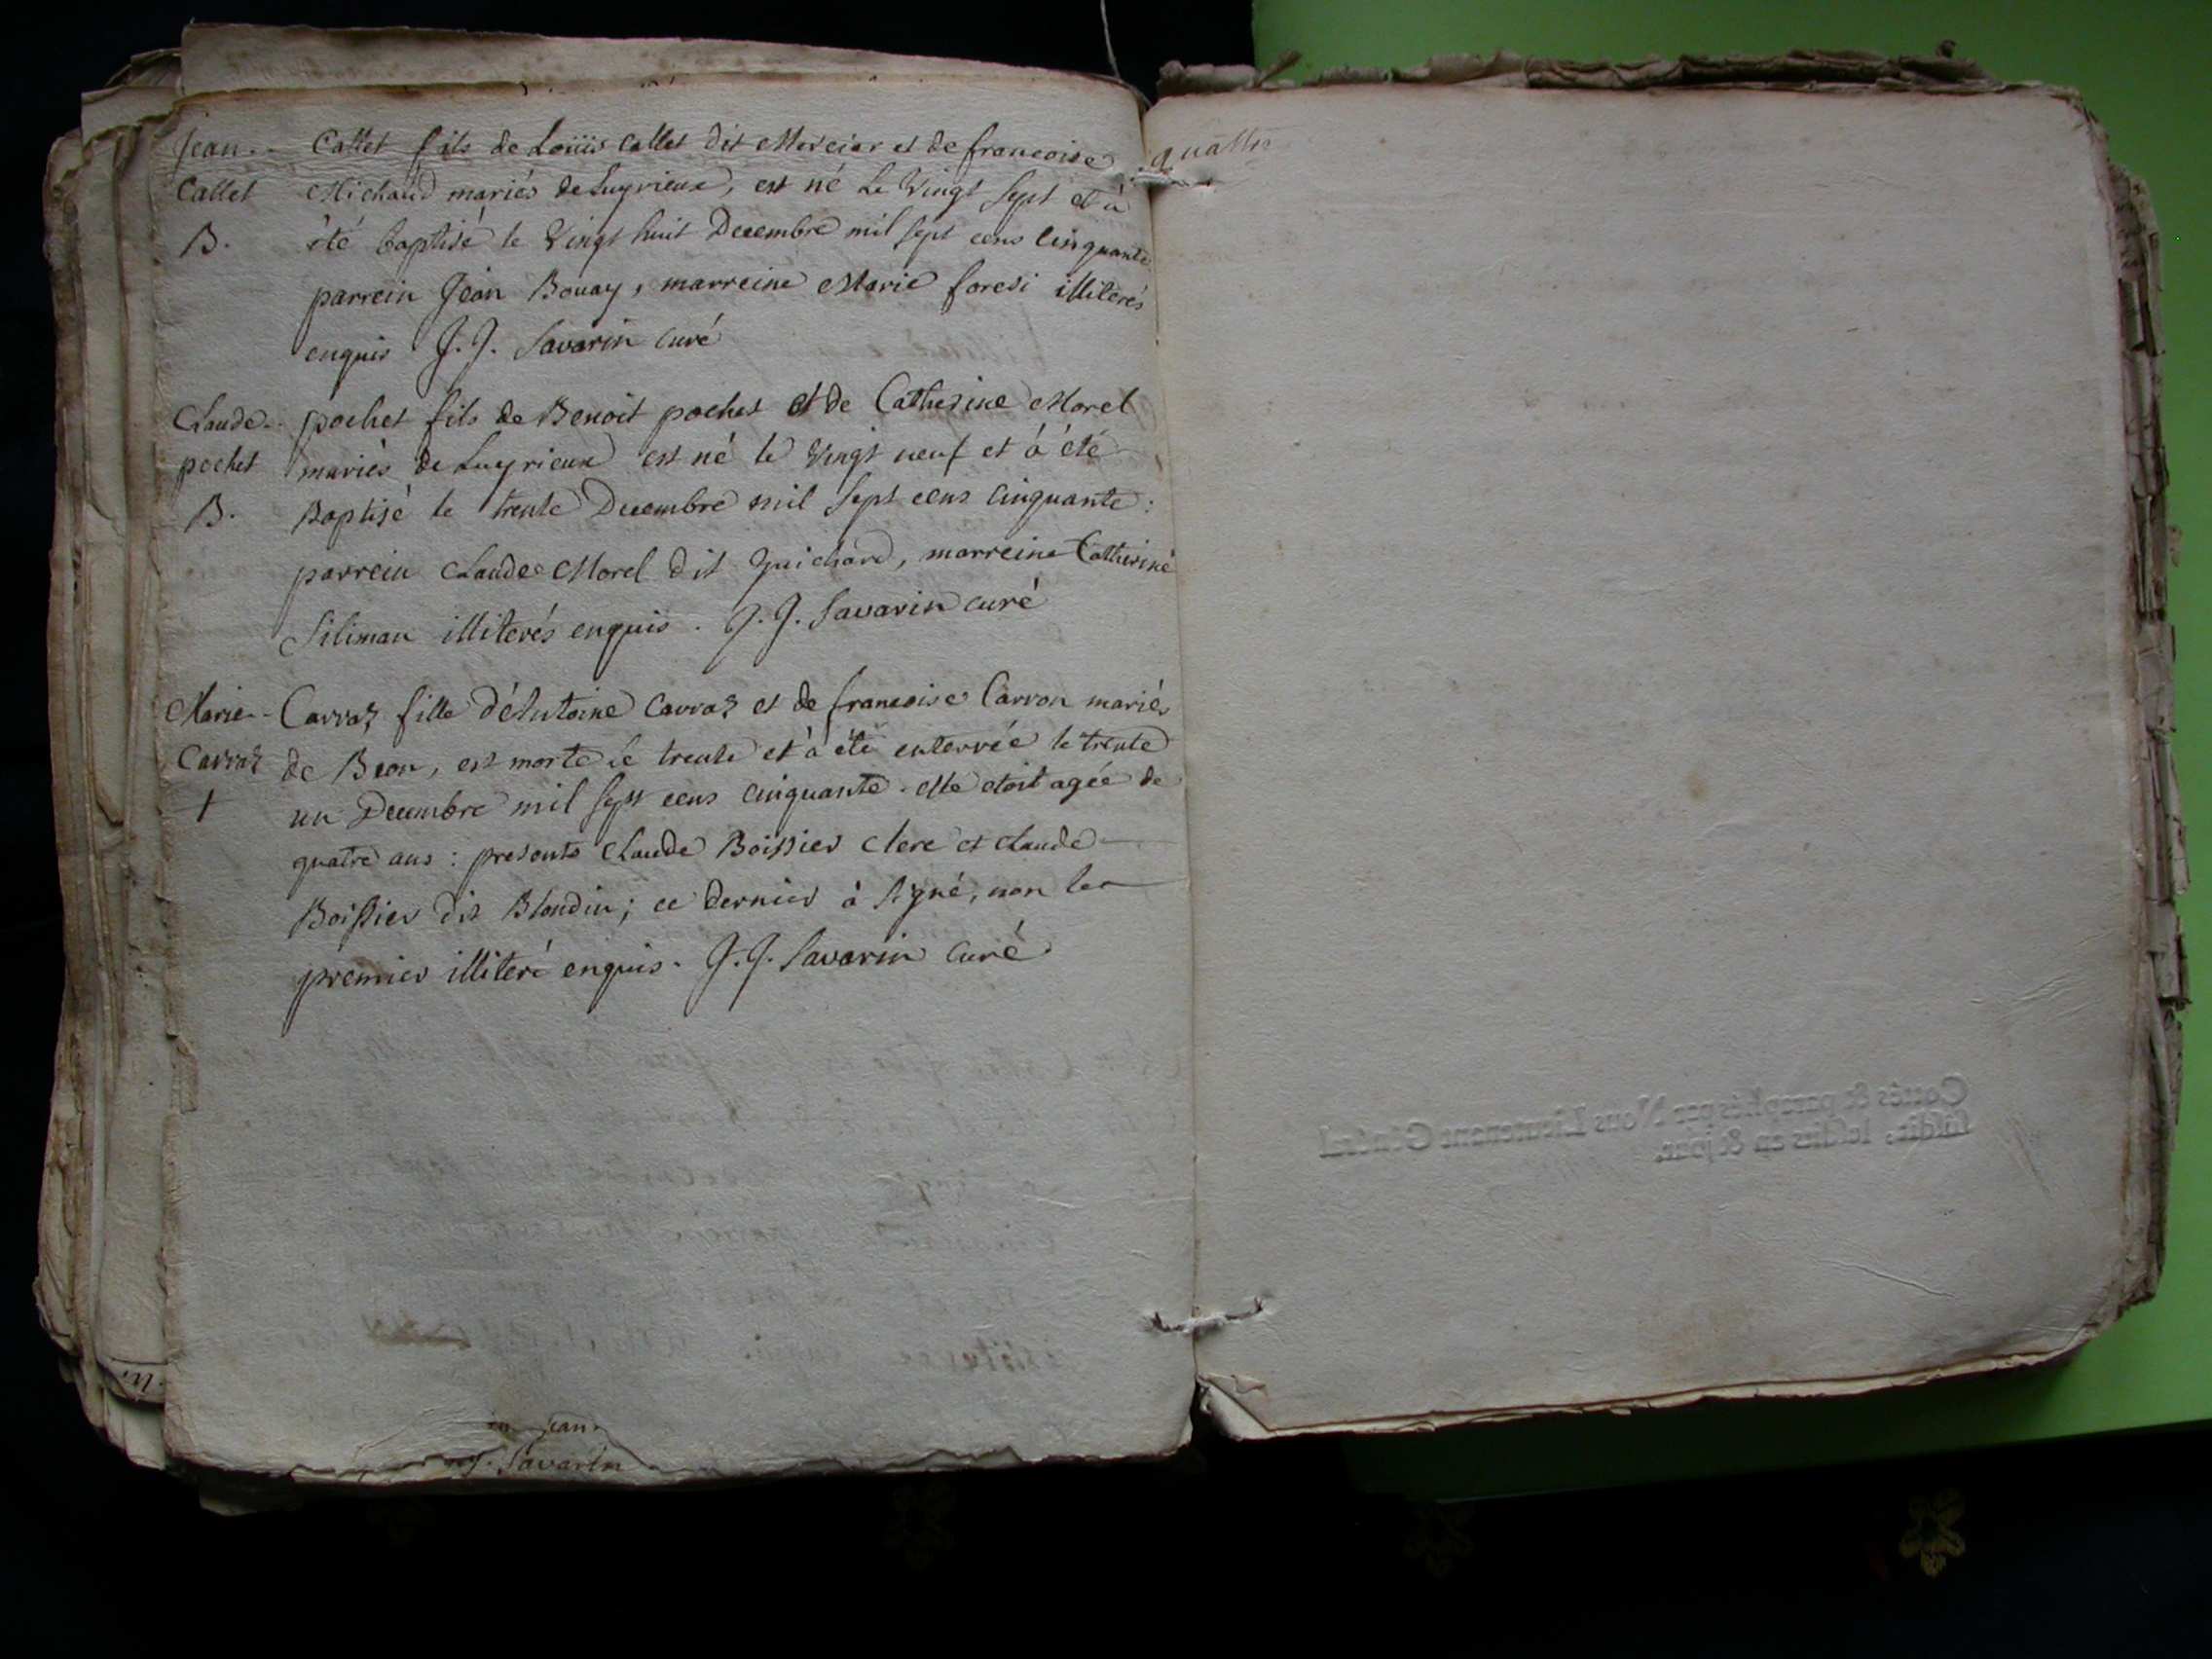 Jean - Callet fils de Loüis Callet dit Mercier et de francoise
Callet Michaud mariés de Luyrieux, est né Le Vingt Sept et à
B. été baptisé le Vingt huit Decembre mil Sept cens Cinquante
parrein Jean Bouay, marreine Marie foresi illiterés
enquis J. J. Savarin Curé
Claude - pochet fils de Benoit pochet et de Catherine Morel
pochet mariés de Luyrieux est né le Vingt neuf et à été
B. Baptisé le trente Decembre mil Sept cens Cinquante :
parrein Claude Morel dit Guichard, marreine Catherine
Siliman illiterés enquis . J. J. Savarin curé
Marie - Carraz fille d'Antoine Carraz et de francoise Carron mariés
Carraz de Beon, est morte le trente et à été enterrée le trente
† un Decembre mil Sept cens Cinquante . elle etoit agée de
quatre ans : presents Claude Boissier clerc et claude
Boissier dit Blondin ; ce dernier à signé, non le
premier illiteré enquis . J. J. Savarin Curé
Jean
Savarin
quattre
Cottés & paraphés par Nous Lieutenant Général
susdit, lesdits an & jour.